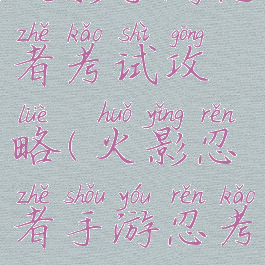 zhě kǎo shì gōng
者考试攻
lüè huǒ yǐng rěn
略(火影忍
zhě shǒu yóu rěn kǎo
者手游忍考